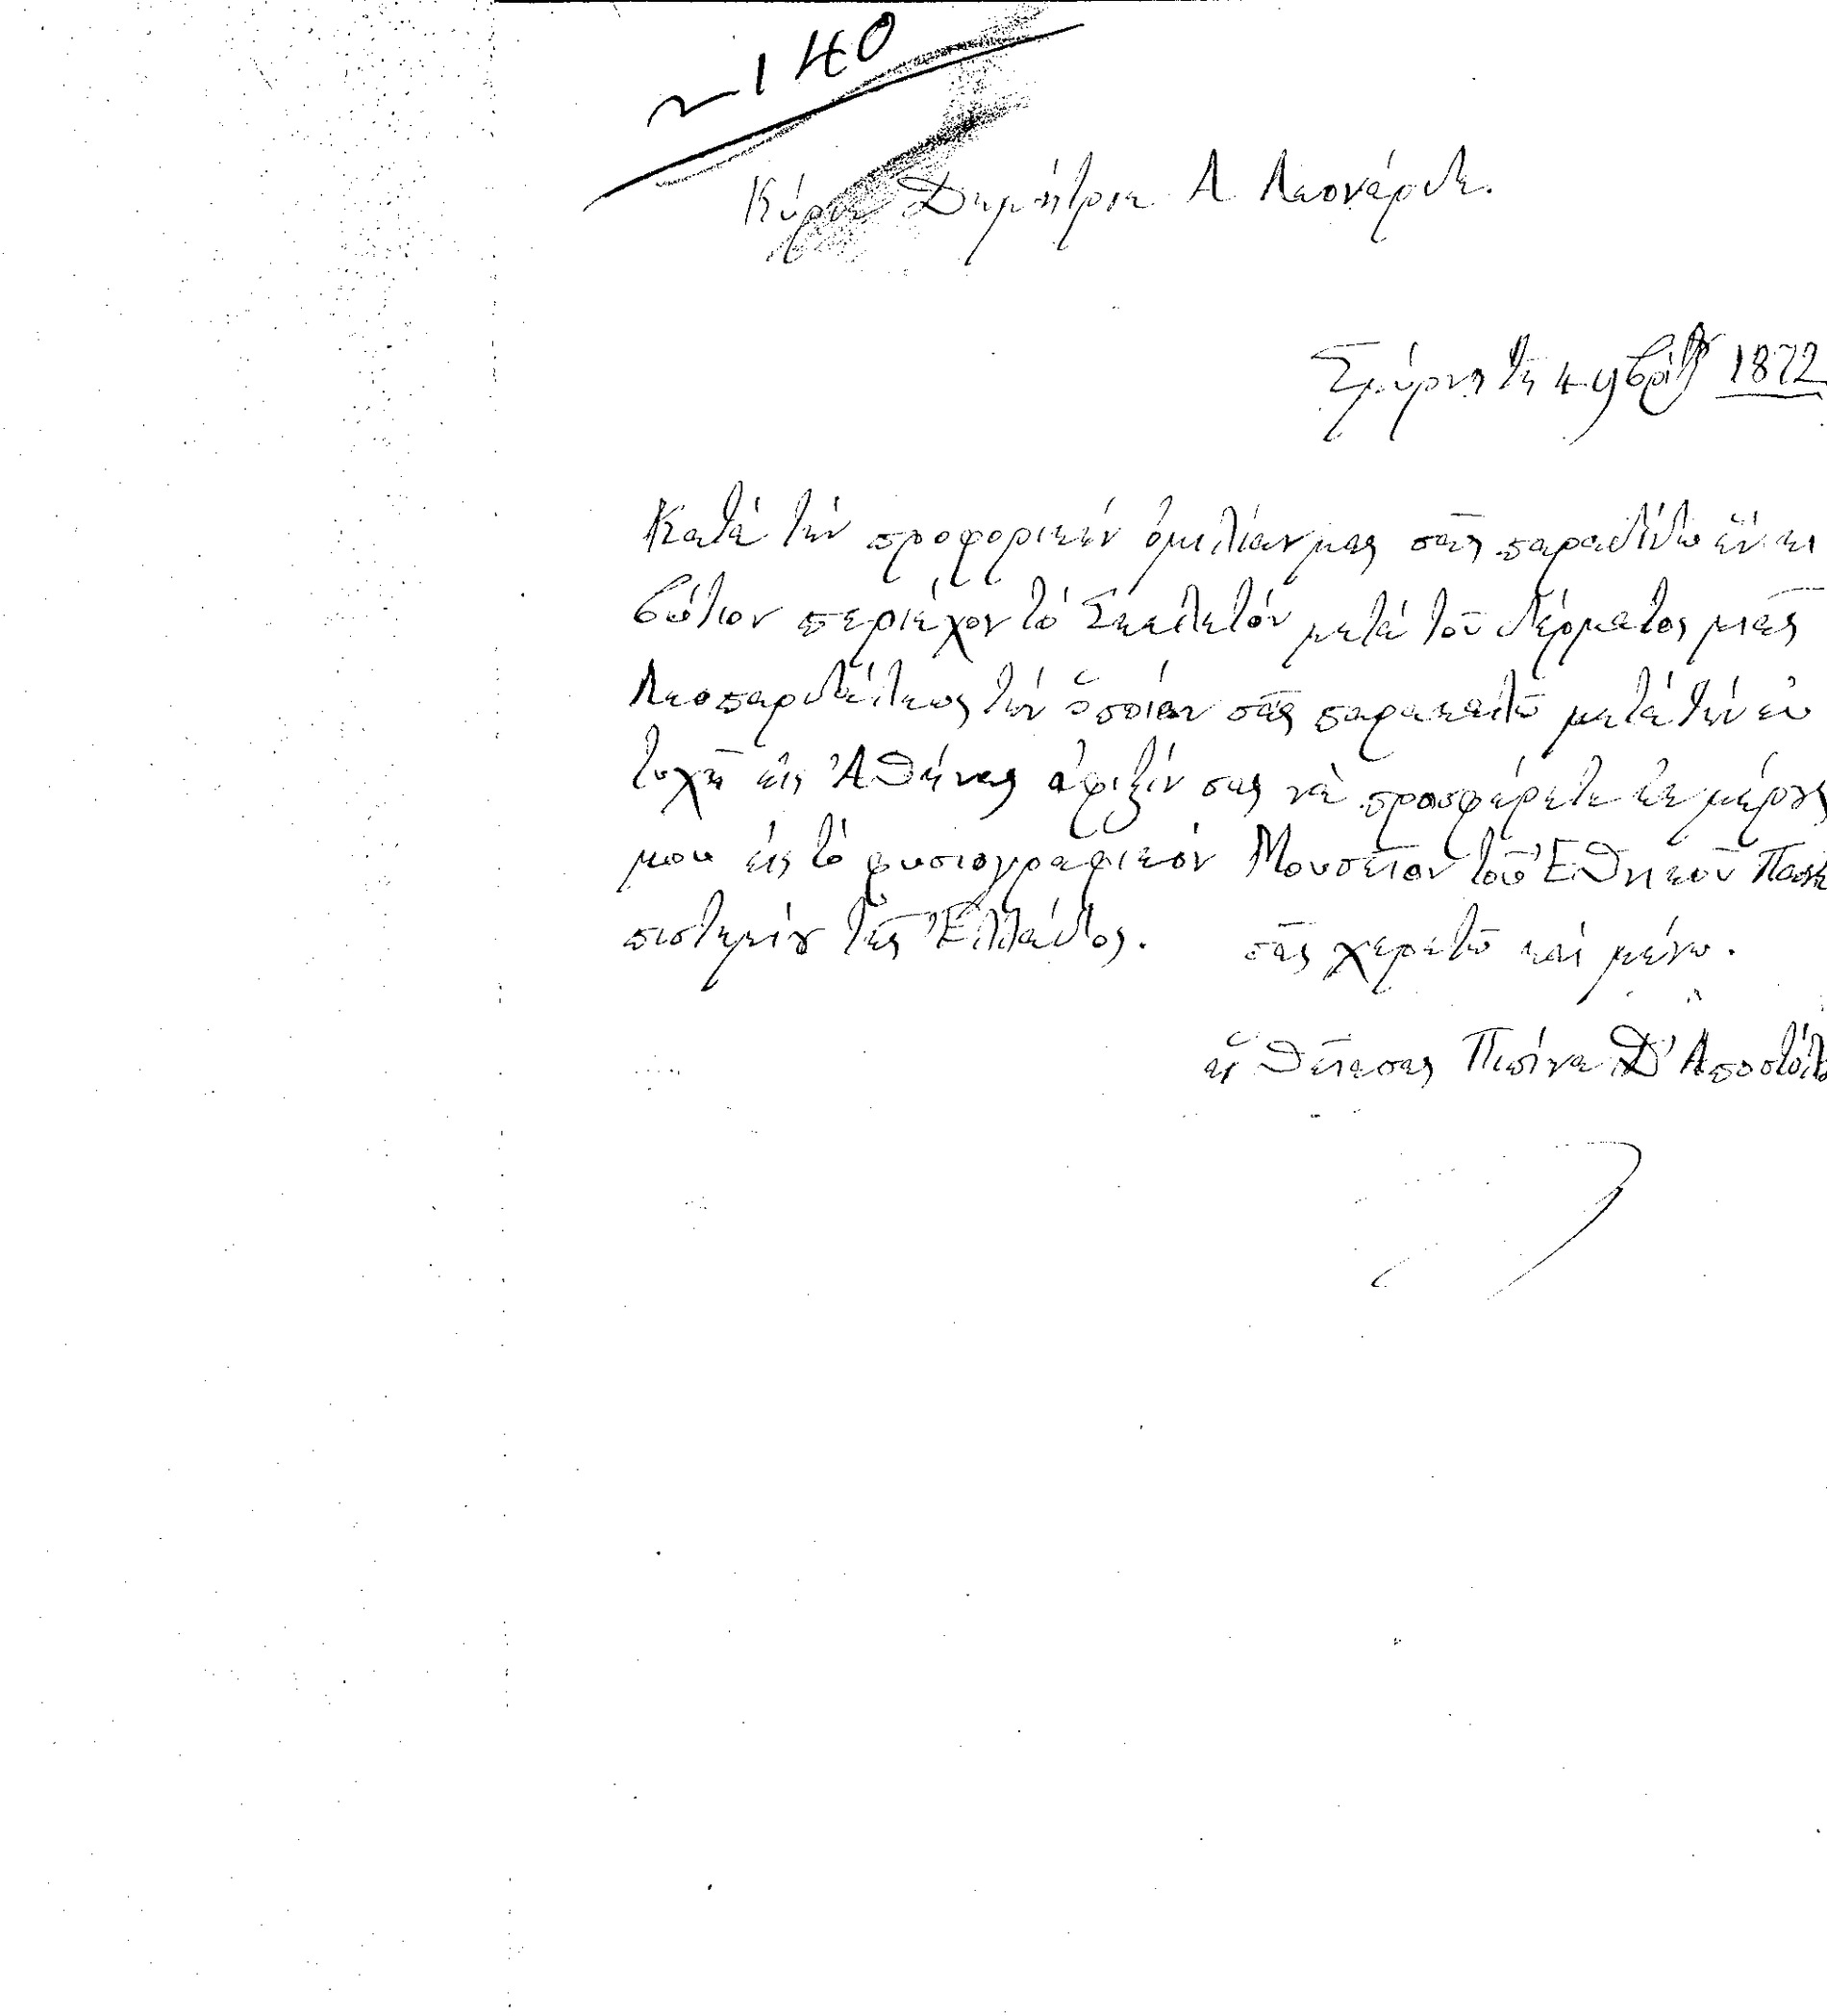 2140
Κύριε Δημήτριε Α Λεονάρδε.
Σμύρνη τη 4 9βρίου 1872
Κατά τήν προφορικήν ὁμιλίαν μας σᾶς παραδίδω ἕν κι
βώτιον περιέχον τό Σκελετόν μετά τοῦ δέρματος μιᾶς
Λεοπαρδάλεως τήν ὁποίαν σᾶς παρακαλῶ μετά τήν εὐ
τυχῆ εἰς Ἀθήνας ἄφιξίν σας νὰ προσφέρετε ἐκ μέρους
μου εἰς τό φυσιογραφικόν Μουσεῖον τοῦ Ἐθνικοῦ Πανε
πιστημίου τῆς Ἑλλάδος. σᾶς χερετῶ καί μένω.
θείασας Δ' Αποστόλο